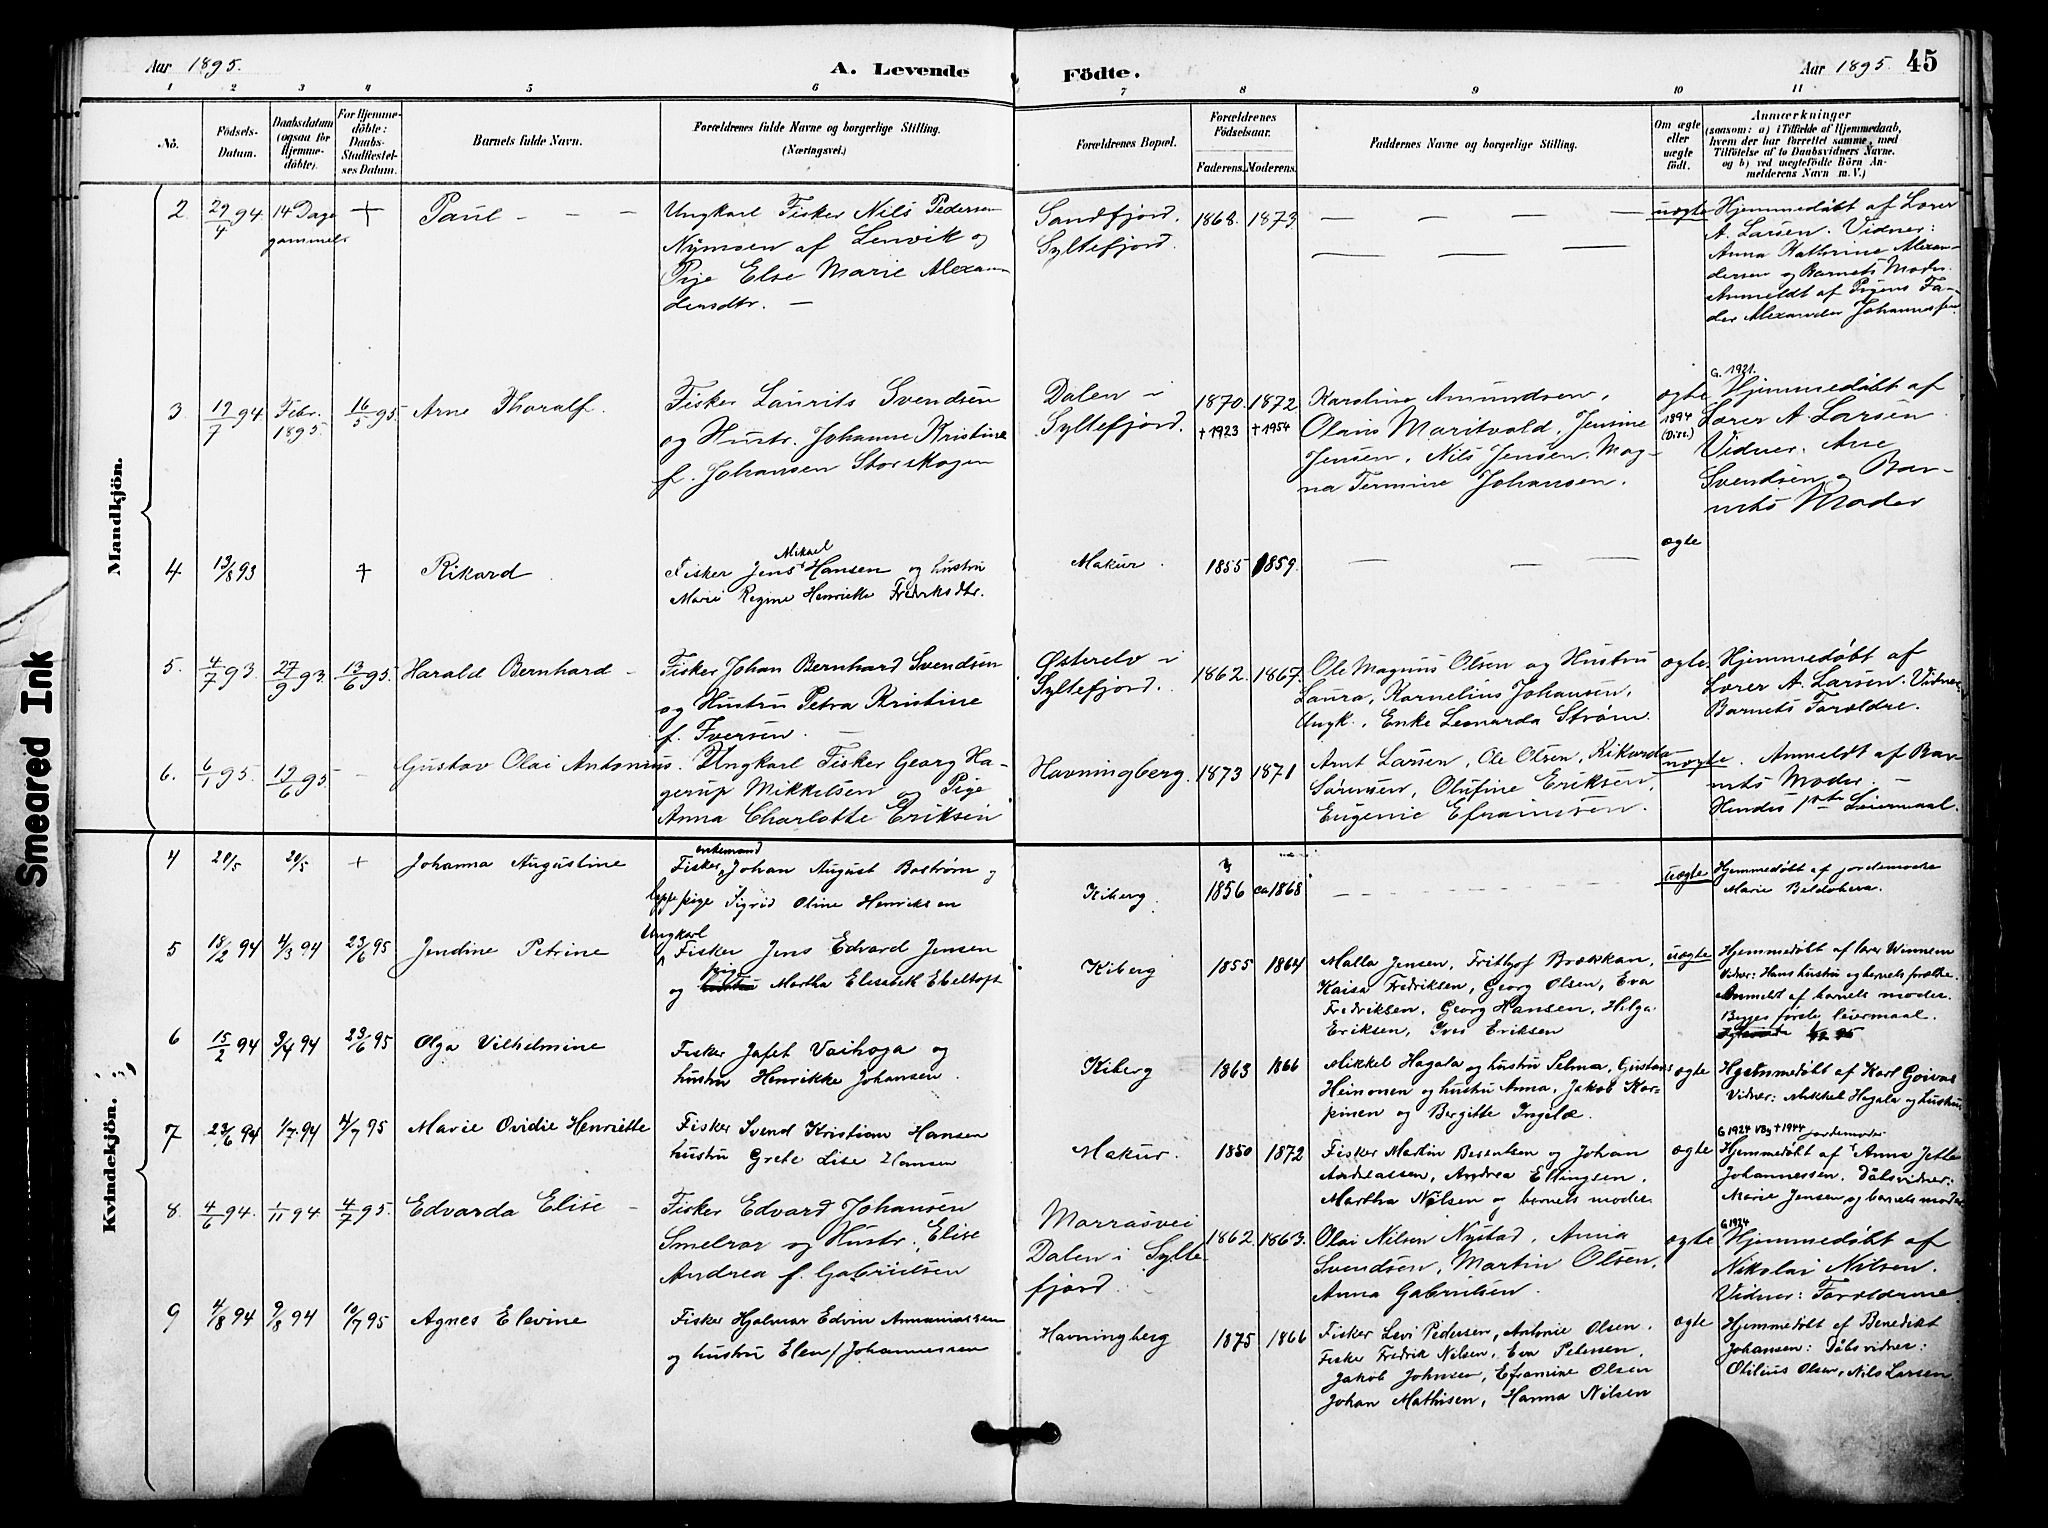 Aar 1895.
A. Levende
Födte.
Aar 1895.
45
1 2 3 4 5 6 7 8 9 10 11
No.
Födsels-
Datum.
Daabsdatum
(ogsaa for
Hjemme-
döbte).
For Hjemme-
döbte:
Daabs-
Stadfæstel-
ses Datum.
Barnets fulde Navn.
Forældrenes fulde Navne og borgerlige Stilling.
(Næringsvei.)
Forældrenes Bopæl.
Forældrenes
Födselsaar.
Faderens. Moderens.
Faddernes Navne og borgerlige Stilling.
Om ægte
eller
uægte
født.
Anmærkninger
(saasom: a) i Tilfælde af Hjemmedaab,
hvem der har forrettet samme, med
Tilföielse af to Daabsvidners Navne.
og b) ved uægtefödte Börn An-
melderens Navn m. V.)
Mandkjön.
2
29/4 94
14 Dage
gammel
+
Paul
Ungkarl Fisker Nils Pedersen
Nymoen af Lenvik og
Pige Else Marie Alexan-
dersdtr.
Sandfjord.
Syltefjord.
1868. 1873.
uægte
Hjemmedøbt af Lærer
A. Larsen. Vidner:
Anna Kathrine Alexan-
dersen og Barnets Moder.
Anmeldt af Pigens Fa-
der Alexander Johannesen
3
19/7 94
Febr.
1895.
16/5 95
Arne Thoralf.
Fisker Laurits Svendsen
og Hustr. Johanne Kristine
f. Johansen Storskogen
Dalen i
Syltefjord.
1870. 1872
+1923 +1954
Karoline Amundsen,
Olaus Maritvold, Jensine
Jensen, Nils Jensen, Mag-
na Termine Johansen.
ægte
1894
(Diss.)
G. 1921.
Hjemmedøbt af
Lærer A. Larsen
Vidner: Ane
Svendsen og Bar-
nets Moder
4
13/8 93
+
Rikard
Mikael
Fisker Jens Hansen og hustru
Marie Regine Henrikke Fredriksdtr.
Makur.
1855 1859.
ægte
5.
4/7 93.
27/9 93.
13/6 95.
Harald Bernhard
Fisker Johan Bernhard Svendsen
og Hustru Petra Kristine
f. Iversen.
Østerelv i
Syltefjord.
1862. 1867.
Ole Magnus Olsen og Hustru
Laura, Kornelius Johansen,
Ungk., Enke Leonarda Strøm.
ægte
Hjemmedøbt af
Lærer A. Larsen. Vidner
Barnets Forældre.
6.
6/1 95.
19/6 95.
Gustav Olai Andsmus.
Ungkarl Fisker Georg Ha-
gerup Mikkelsen og Pige
Anna Charlotte Eriksen
Havningberg.
1873 1871
Arnt Larsen, Ole Olsen, Rikarda
Sørensen, Olufine Eriksen,
Eugenie Efraimsen.
uægte.
Anmeldt af Bar-
nets Moder.
Hendes 1ste Leiermaal.
Kvindekjön.
4
20/5
20/5
+
Johanna Augustine
enkemand
Fisker Johan August Bostrøm og
lappepige Sigrid Oline Henriksen
Kiberg.
1856 ca 1868
uægte
Hjemmedøbt af jordemoder
Marie
5
18/2 94
4/3 94
23/6 95
Jendine Petrine
Ungkarl
Fisker Jens Edvard Jensen
pige
og hustru Martha Elisabeth Ebeltoft
Kiberg
1855 1864
Malla Jensen, Frithjof Brækkan,
Kaisa Fredriksen, Georg Olsen, Eva
Fredriksen, Georg Hansen, Helga
Eriksen, Iver Eriksen
uægte
Hjemmedøbt af lærer Winnem
Vidner: Hans hustru og barnets forældre.
Anmeldt af barnets moder.
Begges første leiermaal.
6
15/2 94
3/4 94
23/6 95
Olga Vilhelmine
Fisker Jafet Vaihoja og
hustru Henrikke Johansen.
Kiberg
1863 1866
Mikkel Hagala og hustru Selma, Gustav
Heinonen og hustru Anna, Jakob Kar-
pinen og Bergitte Ingilæ.
ægte
Hjemmedøbt af Karl
Vidner: Mikkel Hagala og hustru
7
23/6 94
1/7 94
4/7 95
Marie Ovidie Henriette
Fisker Svend Kristian Hansen
hustru Grete Lise Hansen
Makur.
1850 1872
Fisker Martin Berntsen og Johan
Andreassen, Andrea Ellingsen,
Martha Nilsen og barnets moder
ægte
G 1924 +1944 jordemoder
Hjemmedøbt af Anna Jette
Johannessen. Dåbsvidner:
Marie Jensen og barnets moder
8.
4/6 94.
1/11 94.
4/7 95.
Edvarda Elise
Fisker Edvard Johansen
Smelror og Hustr. Elise
Andrea f. Gabrielsen
Morrasvei
Dalen i Sylte
fjord.
1862 1863.
Olai Nilsen Nystad, Anna
Svendsen, Martin Olsen,
Anna Gabrielsen.
ægte
G 1924
Hjemmedøbt af
Nikolai Nilsen.
Vidner: Forældrene
9
4/8 94
9/8 94
10/7 95
Agnes Elevine
Fisker Hjalmar Edvin Annaniassen
og hustru Elen Johannessen
Havningberg
1875 1866
Fisker Levi Pedersen, Antonie Olsen.
Fisker Fredrik Nilsen, Eva Petersen,
Jakob Johnsen, Eframine Olsen
Johan Mathisen, Hanna Nilsen
ægte
Hjemmedøbt af Benedikt
Johansen: Dåbsvidner:
Otilius Olsen, Nils Larsen
Smeared Ink